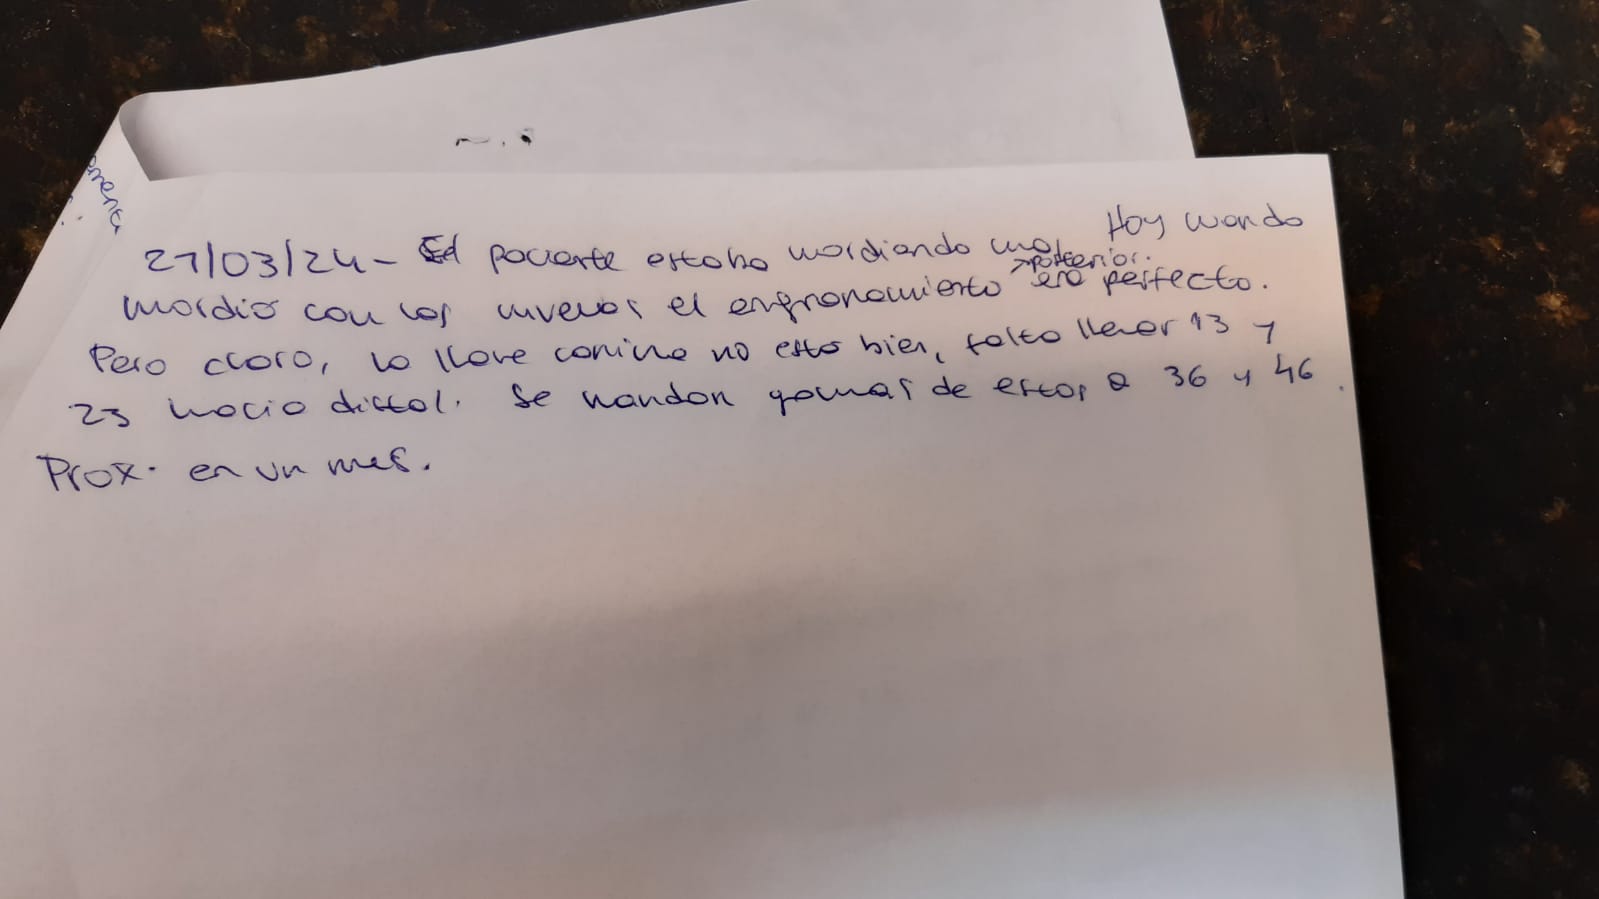 Hoy cuando
27/03/24 - El paciente estaba mordiendo mal
posterior.
mordió con las muelas el engranamiento era perfecto.
Pero claro, la llave canina no esta bien, falta llevar 13 y
23 hacia distal. Se mandan gomas de estos a 36 y 46.
Prox. en un mes.